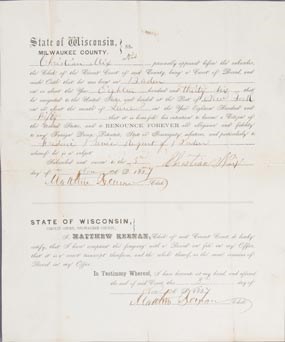 State of Wisconsin,
MILWAUKEE COUNTY. } ss.
Christian personally appeared before the subscriber,
the Clerk of the Circuit Court of said County, being a Court of Record, and
made Oath that he was born in Baden
on or about the Year Eighteen hundred and thirty six that
he emigrated to the United States, and landed at the Port of New York
on or about the month of in the Year Eighteen Hundred and
Fifty that it is bona fide his intention to become a Citizen of
the United States, and to RENOUNCE FOREVER all allegiance and fidelity
to any Foreign Prince, Potentate, State or Sovereignty whatever, and particularly to
Prince Regent of Baden
whereof he is a subject.
Subscribed and sworn to this 5th Christian
day of A. D. 1857
Matthew Keenan Clerk
STATE OF WISCONSIN,
CIRCUIT COURT, MILWAUKEE COUNTY.
I, MATTHEW KEENAN, Clerk of said Circuit Court do hereby
certify, that I have compared the foregoing with a Record on file in my Office,
that it is a exact transcript therefrom, and the whole thereof, as the same remains of
Record in my Office.
In Testimony Whereof, I have hereunto set my hand, and affixed
the seal of said Court, this 5th day of
A. D. 1857
Matthew Keenan Clerk